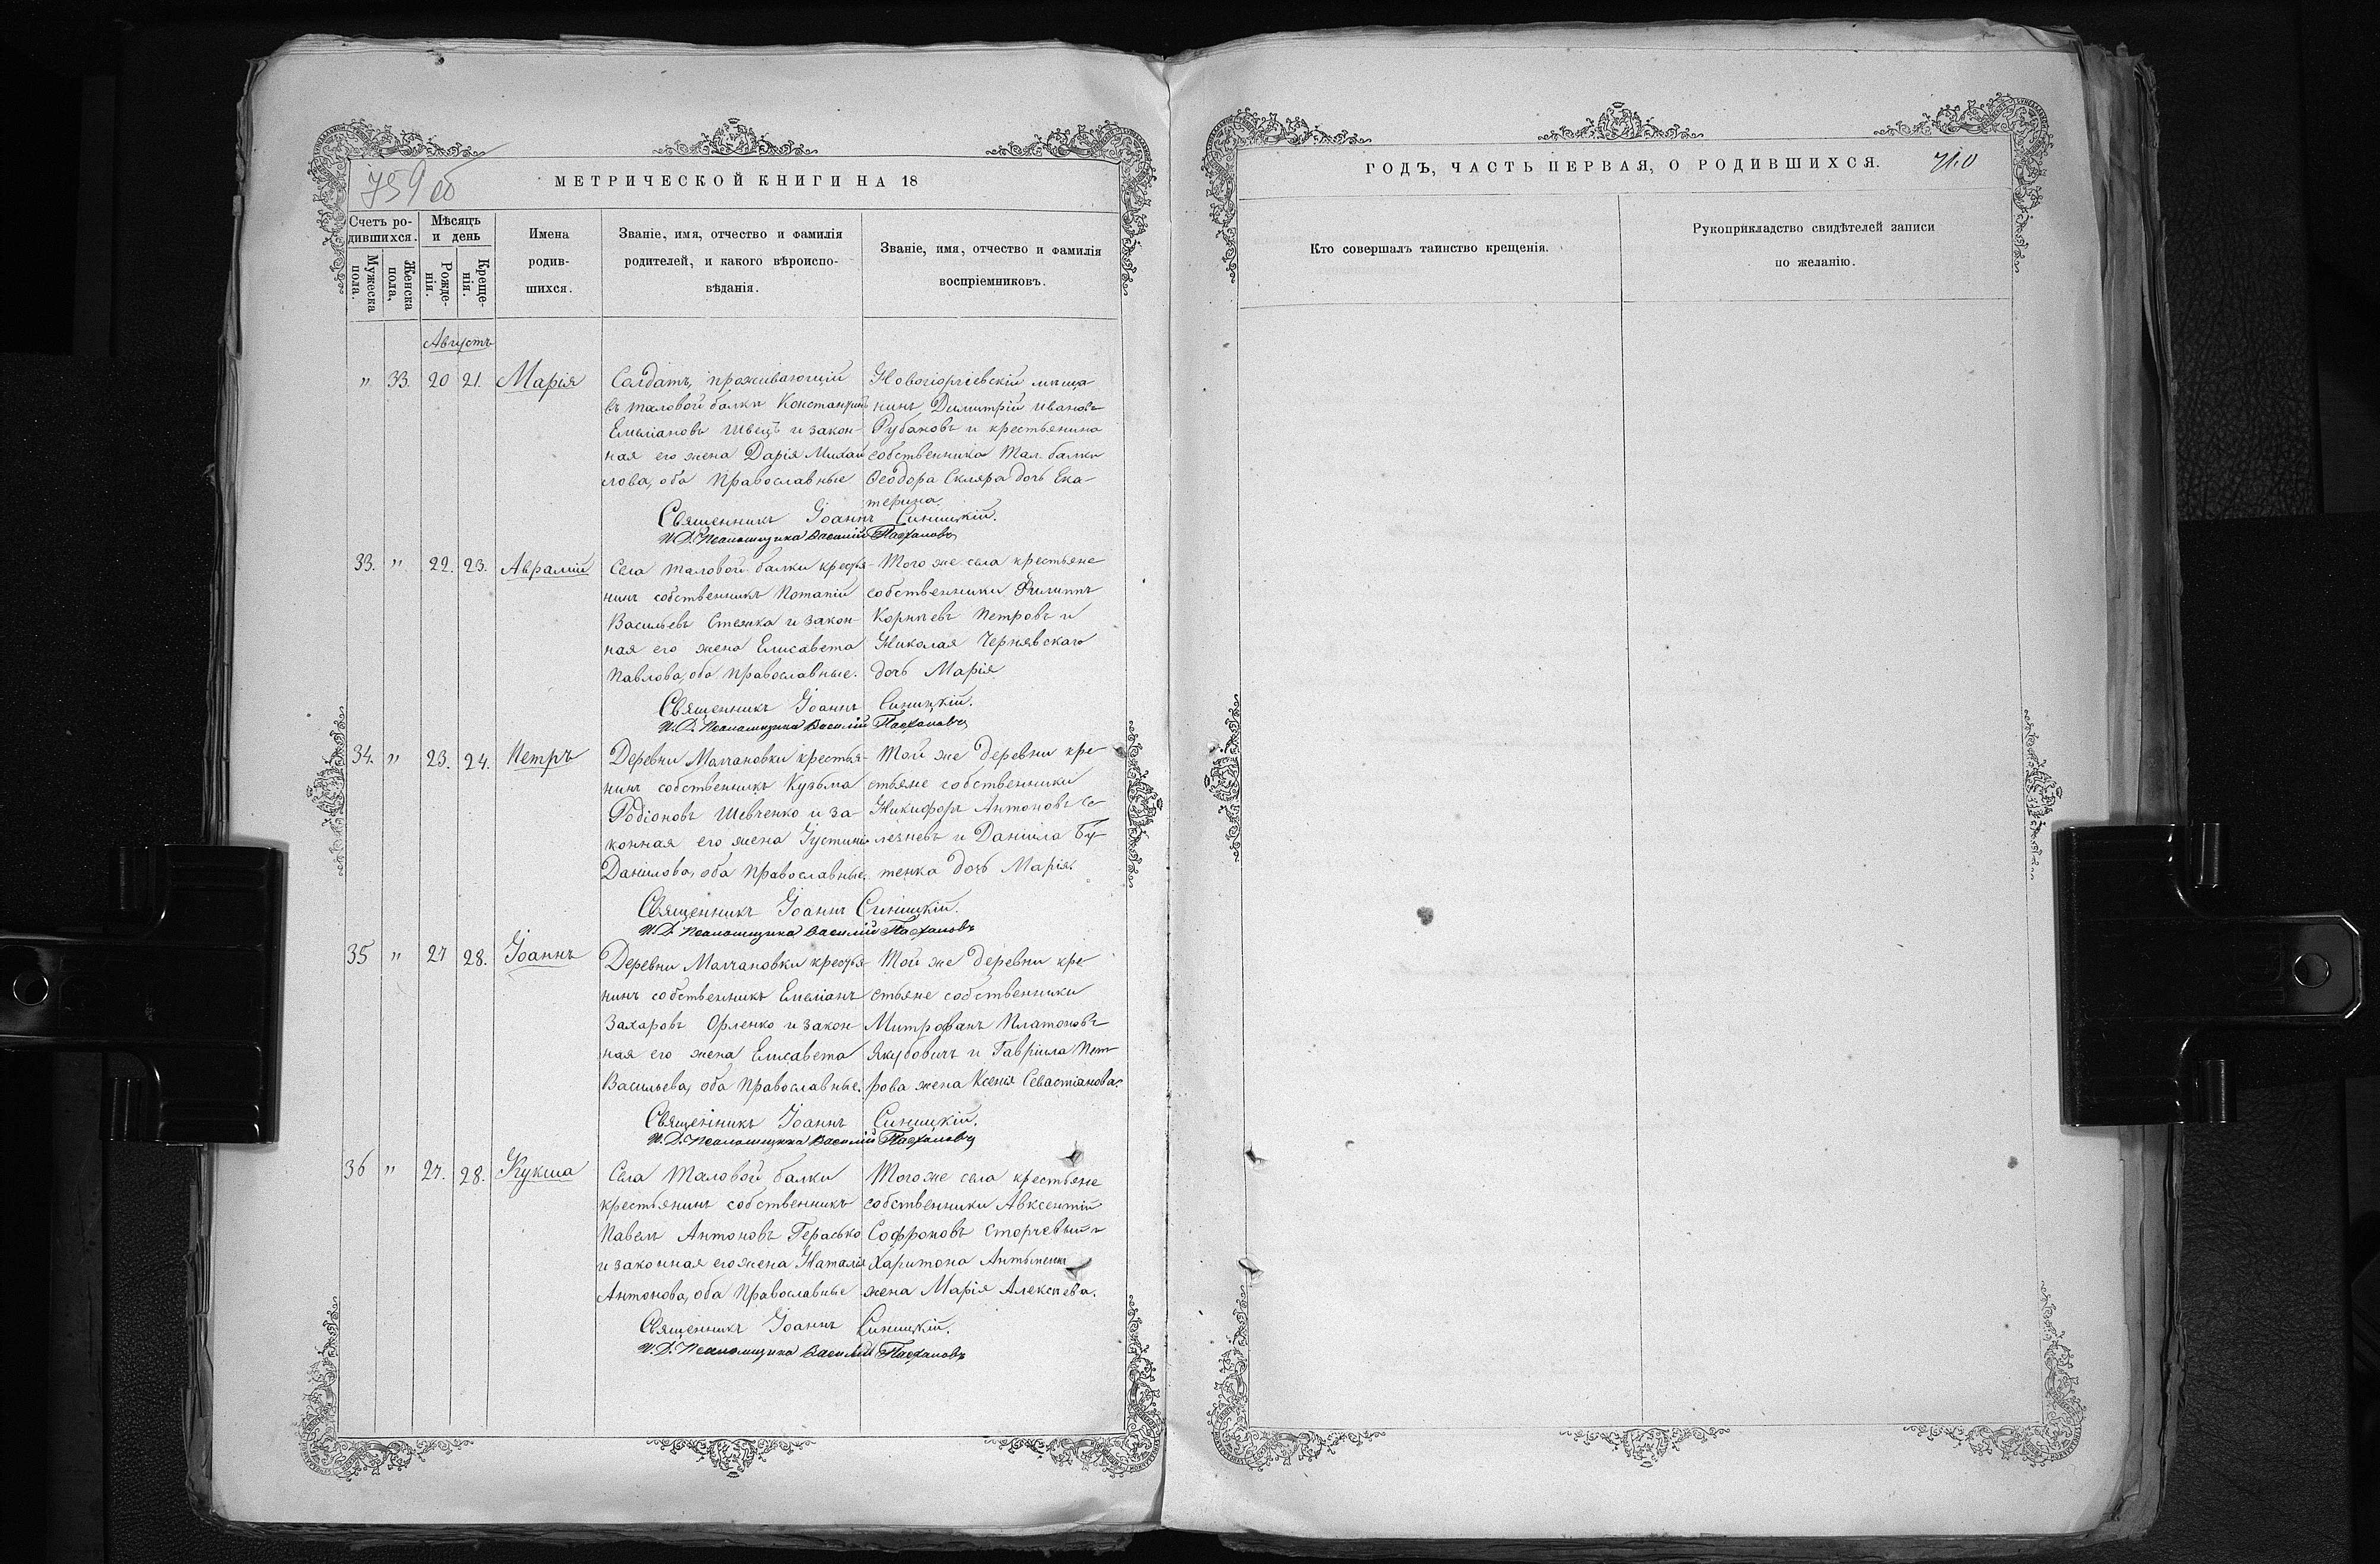 759 об
МЕТРИЧЕСКОЙ КНИГИ НА 18
Счетъ родившихся.
Мужеска пола.
Женска пола.
Мѣсяцъ и день
Рожденія.
Крещенія.
Имена родившихся.
Званіе, имя, отчество и фамилія
родителей, и какого вѣроиспо-
вѣданія.
Званіе, имя, отчество и фамилія
воспріемниковъ.
Августъ
" 33. 20 21. Марія
Солдатъ, проживающій
въ Таловой балки Константинъ
Емеліановъ Швецъ и закон-
ная его жена Дарія Михаи
лова, оба Православные
Новогіоргіевскій мѣща
нинъ Димитрій Ивановъ
Рубановъ и крестьянина
собственника Тал. балки
Ѳеодора Скляра дочь Ека-
терина
Священникъ Іоаннъ Синицкій.
И. Д. Псаломщика Василій Пасхаловъ
33. " 22. 23. Аврамій
Села Таловой балки кресть-
нинъ собственникъ Потапій
Васильевъ Стежка и закон-
ная его жена Елисавета
Павлова, оба Православные.
Того же села крестьяне
собственники Филиппъ
Корнѣевъ Петровъ и
Николая Чернявскаго
дочь Марія
Священникъ Іоаннъ Синицкій.
И. Д. Псаломщика Василій Пасхаловъ
34. " 23. 24. Петръ
Деревни Малчановки крестья-
нинъ собственникъ Кузьма
Родіоновъ Шевченко и за-
конная его жена Іустинія
Данилова, оба Православные,
Той же деревни кре
стьяне собственники
Никифоръ Антоновъ Се
лезневъ и Даніила Бу-
тенка дочь Марія.
Священникъ Іоаннъ Синицкій.
И. Д. Псаломщика Василій Пасхаловъ
35 " 27 28. Іоаннъ
Деревни Малчановки крестья-
нинъ собственникъ Емеліанъ
Захаровъ Орленко и закон-
ная его жена Елисавета
Васильева, оба Православные.
Той же деревни кре
стьяне собственники
Митрофанъ Платоновъ
Якубовичъ и Гавріила Пет
рова жена Ксенія Севастіанова.
Священникъ Іоаннъ Синицкій.
И. Д. Псаломщика Василій Пасхаловъ
36 " 27. 28. Кукша
Села Таловой балки
крестьянинъ собственникъ
Павелъ Антоновъ Герасько
и законная его жена Наталія
Антонова, оба Православные
Того же села крестьяне
собственники Авксентій
Софроновъ Сторчевый и
Харитона
жена Марія Алексѣева.
Священникъ Іоаннъ Синицкій.
И. Д. Псаломщика Василій Пасхаловъ
ГОДЪ, ЧАСТЬ ПЕРВАЯ, О РОДИВШИХСЯ.
Кто совершалъ таинство крещенія.
Рукоприкладство свидѣтелей записи
по желанію.